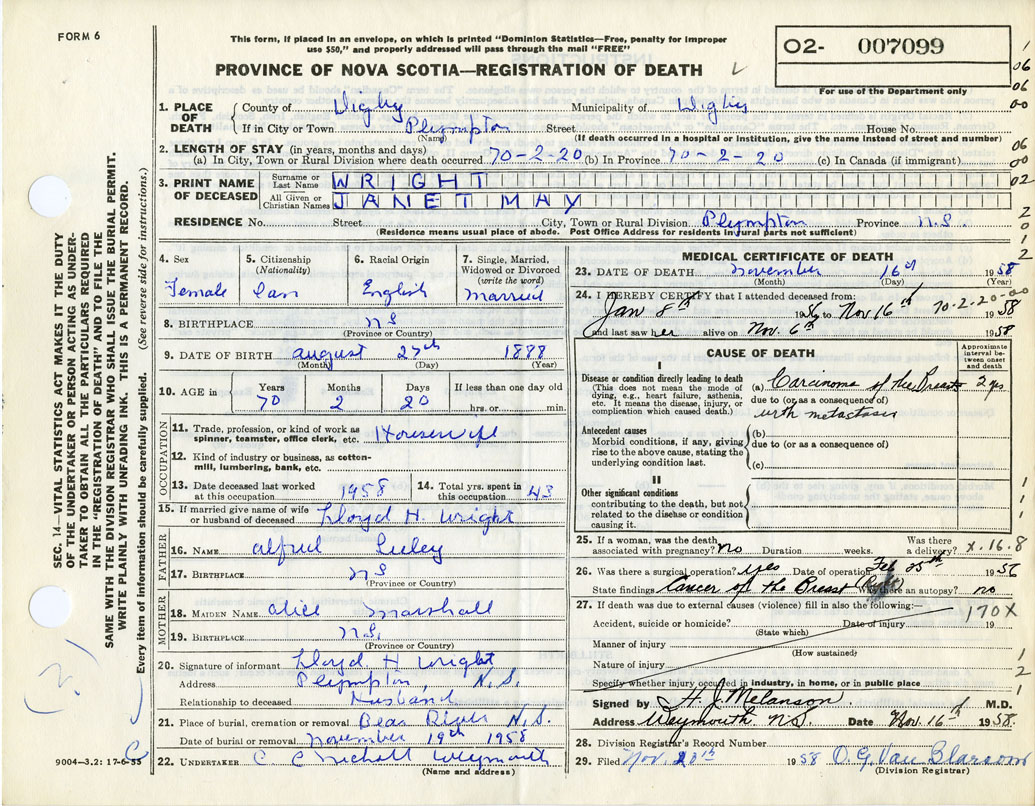 FORM 6
This form, if placed in an envelope, on which is printed "Dominion Statistics—Free, penalty for improper
use $50," and properly addressed will pass through the mail "FREE"
PROVINCE OF NOVA SCOTIA—REGISTRATION OF DEATH
O2- 007099
For use of the Department only
1. PLACE OF DEATH County of Digby Municipality of Digby
If in City or Town Plympton Street House No.
(Name) (If death occurred in a hospital or institution, give the name instead of street and number)
2. LENGTH OF STAY (in years, months and days)
(a) In City, Town or Rural Division where death occurred 70-2-20 (b) In Province 70-2-20 (c) In Canada (if immigrant)
3. PRINT NAME OF DECEASED Surname or Last Name WRIGHT
All Given or Christian Names JANET MAY
RESIDENCE No. Street City, Town or Rural Division Plympton Province N.S.
(Residence means usual place of abode. Post Office Address for residents in rural parts not sufficient)
4. Sex Female
5. Citizenship (Nationality) Can
6. Racial Origin English
7. Single, Married, Widowed or Divorced (write the word) Married
8. BIRTHPLACE NS
(Province or Country)
9. DATE OF BIRTH August 27th 1888
(Month) (Day) (Year)
10. AGE in Years 70 Months 2 Days 20 If less than one day old hrs. or min.
OCCUPATION
11. Trade, profession, or kind of work as spinner, teamster, office clerk, etc. Housewife
12. Kind of industry or business, as cotton-mill, lumbering, bank, etc.
13. Date deceased last worked at this occupation 1958
14. Total yrs. spent in this occupation 43
15. If married give name of wife or husband of deceased Lloyd H. Wright
FATHER
16. NAME Alfred
17. BIRTHPLACE NS
(Province or Country)
MOTHER
18. MAIDEN NAME Alice Marshall
19. BIRTHPLACE N.S.
(Province or Country)
20. Signature of informant Lloyd H Wright
Address Plympton, N.S.
Relationship to deceased Husband
21. Place of burial, cremation or removal Bear River N.S.
Date of burial or removal November 19th 1958
22. UNDERTAKER C. C Nichols Weymouth
(Name and address)
MEDICAL CERTIFICATE OF DEATH
23. DATE OF DEATH November 16th 1958
(Month) (Day) (Year)
24. I HEREBY CERTIFY that I attended deceased from:
Jan 8th 1956 to Nov 16th 1958 70-2-20-00
and last saw her alive on Nov. 6th 1958
CAUSE OF DEATH
Approximate interval between onset and death
I
Disease or condition directly leading to death
(This does not mean the mode of dying, e.g., heart failure, asthenia, etc. It means the disease, injury, or complication which caused death.)
(a) Carcinoma of the Breast 2 yrs
due to (or as a consequence of)
with metastases
Antecedent causes
Morbid conditions, if any, giving rise to the above cause, stating the underlying condition last.
(b)
due to (or as a consequence of)
(c)
II
Other significant conditions
contributing to the death, but not related to the disease or condition causing it.
25. If a woman, was the death associated with pregnancy? No Duration weeks. Was there a delivery? X.16.8
26. Was there a surgical operation? yes Date of operation Feb 25th 1956
State findings Cancer of the Breast (Right) Was there an autopsy? no
27. If death was due to external causes (violence) fill in also the following:—
170X
Accident, suicide or homicide? Date of injury 19
(State which)
Manner of injury
(How sustained)
Nature of injury
Specify whether injury occurred in industry, in home, or in public place
Signed by H. J. Melanson M.D.
Address Weymouth NS. Date Nov. 16th 1958.
28. Division Registrar's Record Number
29. Filed Nov. 20th 1958 O. G. Van Blarcom
(Division Registrar)
SEC. 14—VITAL STATISTICS ACT MAKES IT THE DUTY
OF THE UNDERTAKER OR PERSON ACTING AS UNDER-
TAKER TO OBTAIN ALL THE PARTICULARS REQUIRED
IN THE "REGISTRATION OF DEATH" AND TO FILE THE
SAME WITH THE DIVISION REGISTRAR WHO SHALL ISSUE THE BURIAL PERMIT.
WRITE PLAINLY WITH UNFADING INK. THIS IS A PERMANENT RECORD.
Every item of information should be carefully supplied. (See reverse side for instructions.)
9004—3.2: 17-6-55
1
06
06
00
06
00
02
2
0
1
2
1
1
1
1
2
1